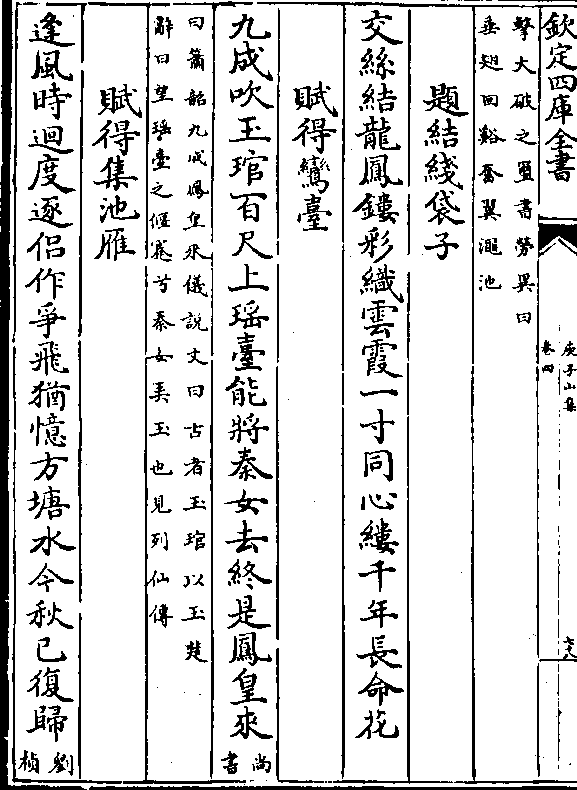 欽定四庫全書
擊大破之璽書勞異曰
垂翅回谿奮翼澠池
題結綫袋子
交絲結龍鳳鏤彩織雲霞一寸同心縷千年長命花
賦得鸞臺
九成吹玉琯百尺上瑶臺能將秦女去終是鳳皇來
尚
書
曰簫韶九成鳳皇來儀説文曰古者玉琯以玉楚
辭曰望瑶臺之偃蹇兮秦女弄玉也見列仙傳
賦得集池雁
逢風時迴度逐侣作爭飛猶憶方塘水今秋已復歸
劉
楨
庾子山集
卷四
七八